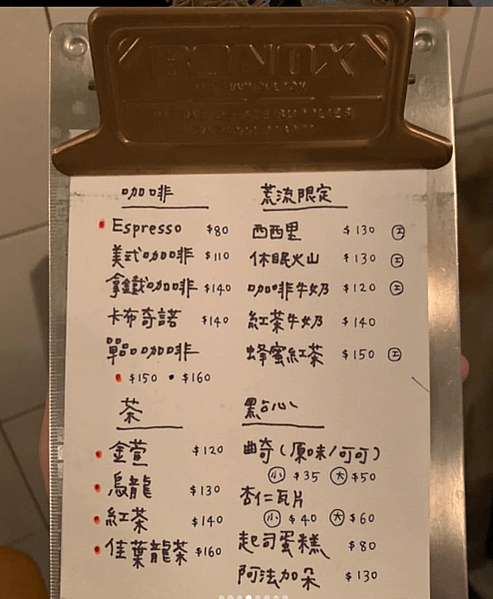 BONOX
咖啡
Espresso $80
美式咖啡 $110
拿鐵咖啡 $140
卡布奇諾 $140
單品咖啡
$150 $160
茶
金萱 $120
烏龍 $130
紅茶 $140
佳葉龍茶 $160
荒流限定
西西里 $130 工
休眠火山 $130 工
咖啡牛奶 $120 工
紅茶牛奶 $140
蜂蜜紅茶 $150 工
點心
曲奇(原味/可可)
小 $35 大 $50
杏仁瓦片
小 $40 大 $60
起司蛋糕 $80
阿法加朵 $130